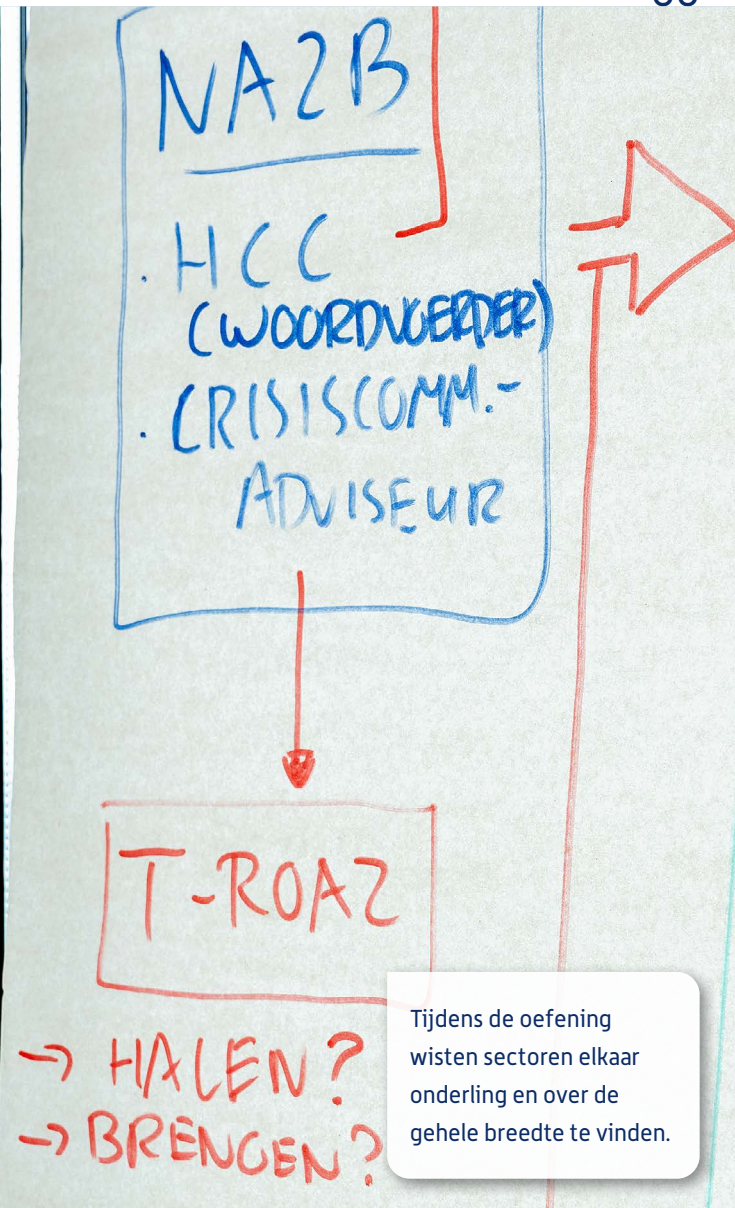 NAZB
. HCC
(WOORDVOERDER)
. CRISISCOMM.-
ADVISEUR
T-ROAZ
→ HALEN?
→ BRENGEN?
Tijdens de oefening
wisten sectoren elkaar
onderling en over de
gehele breedte te vinden.